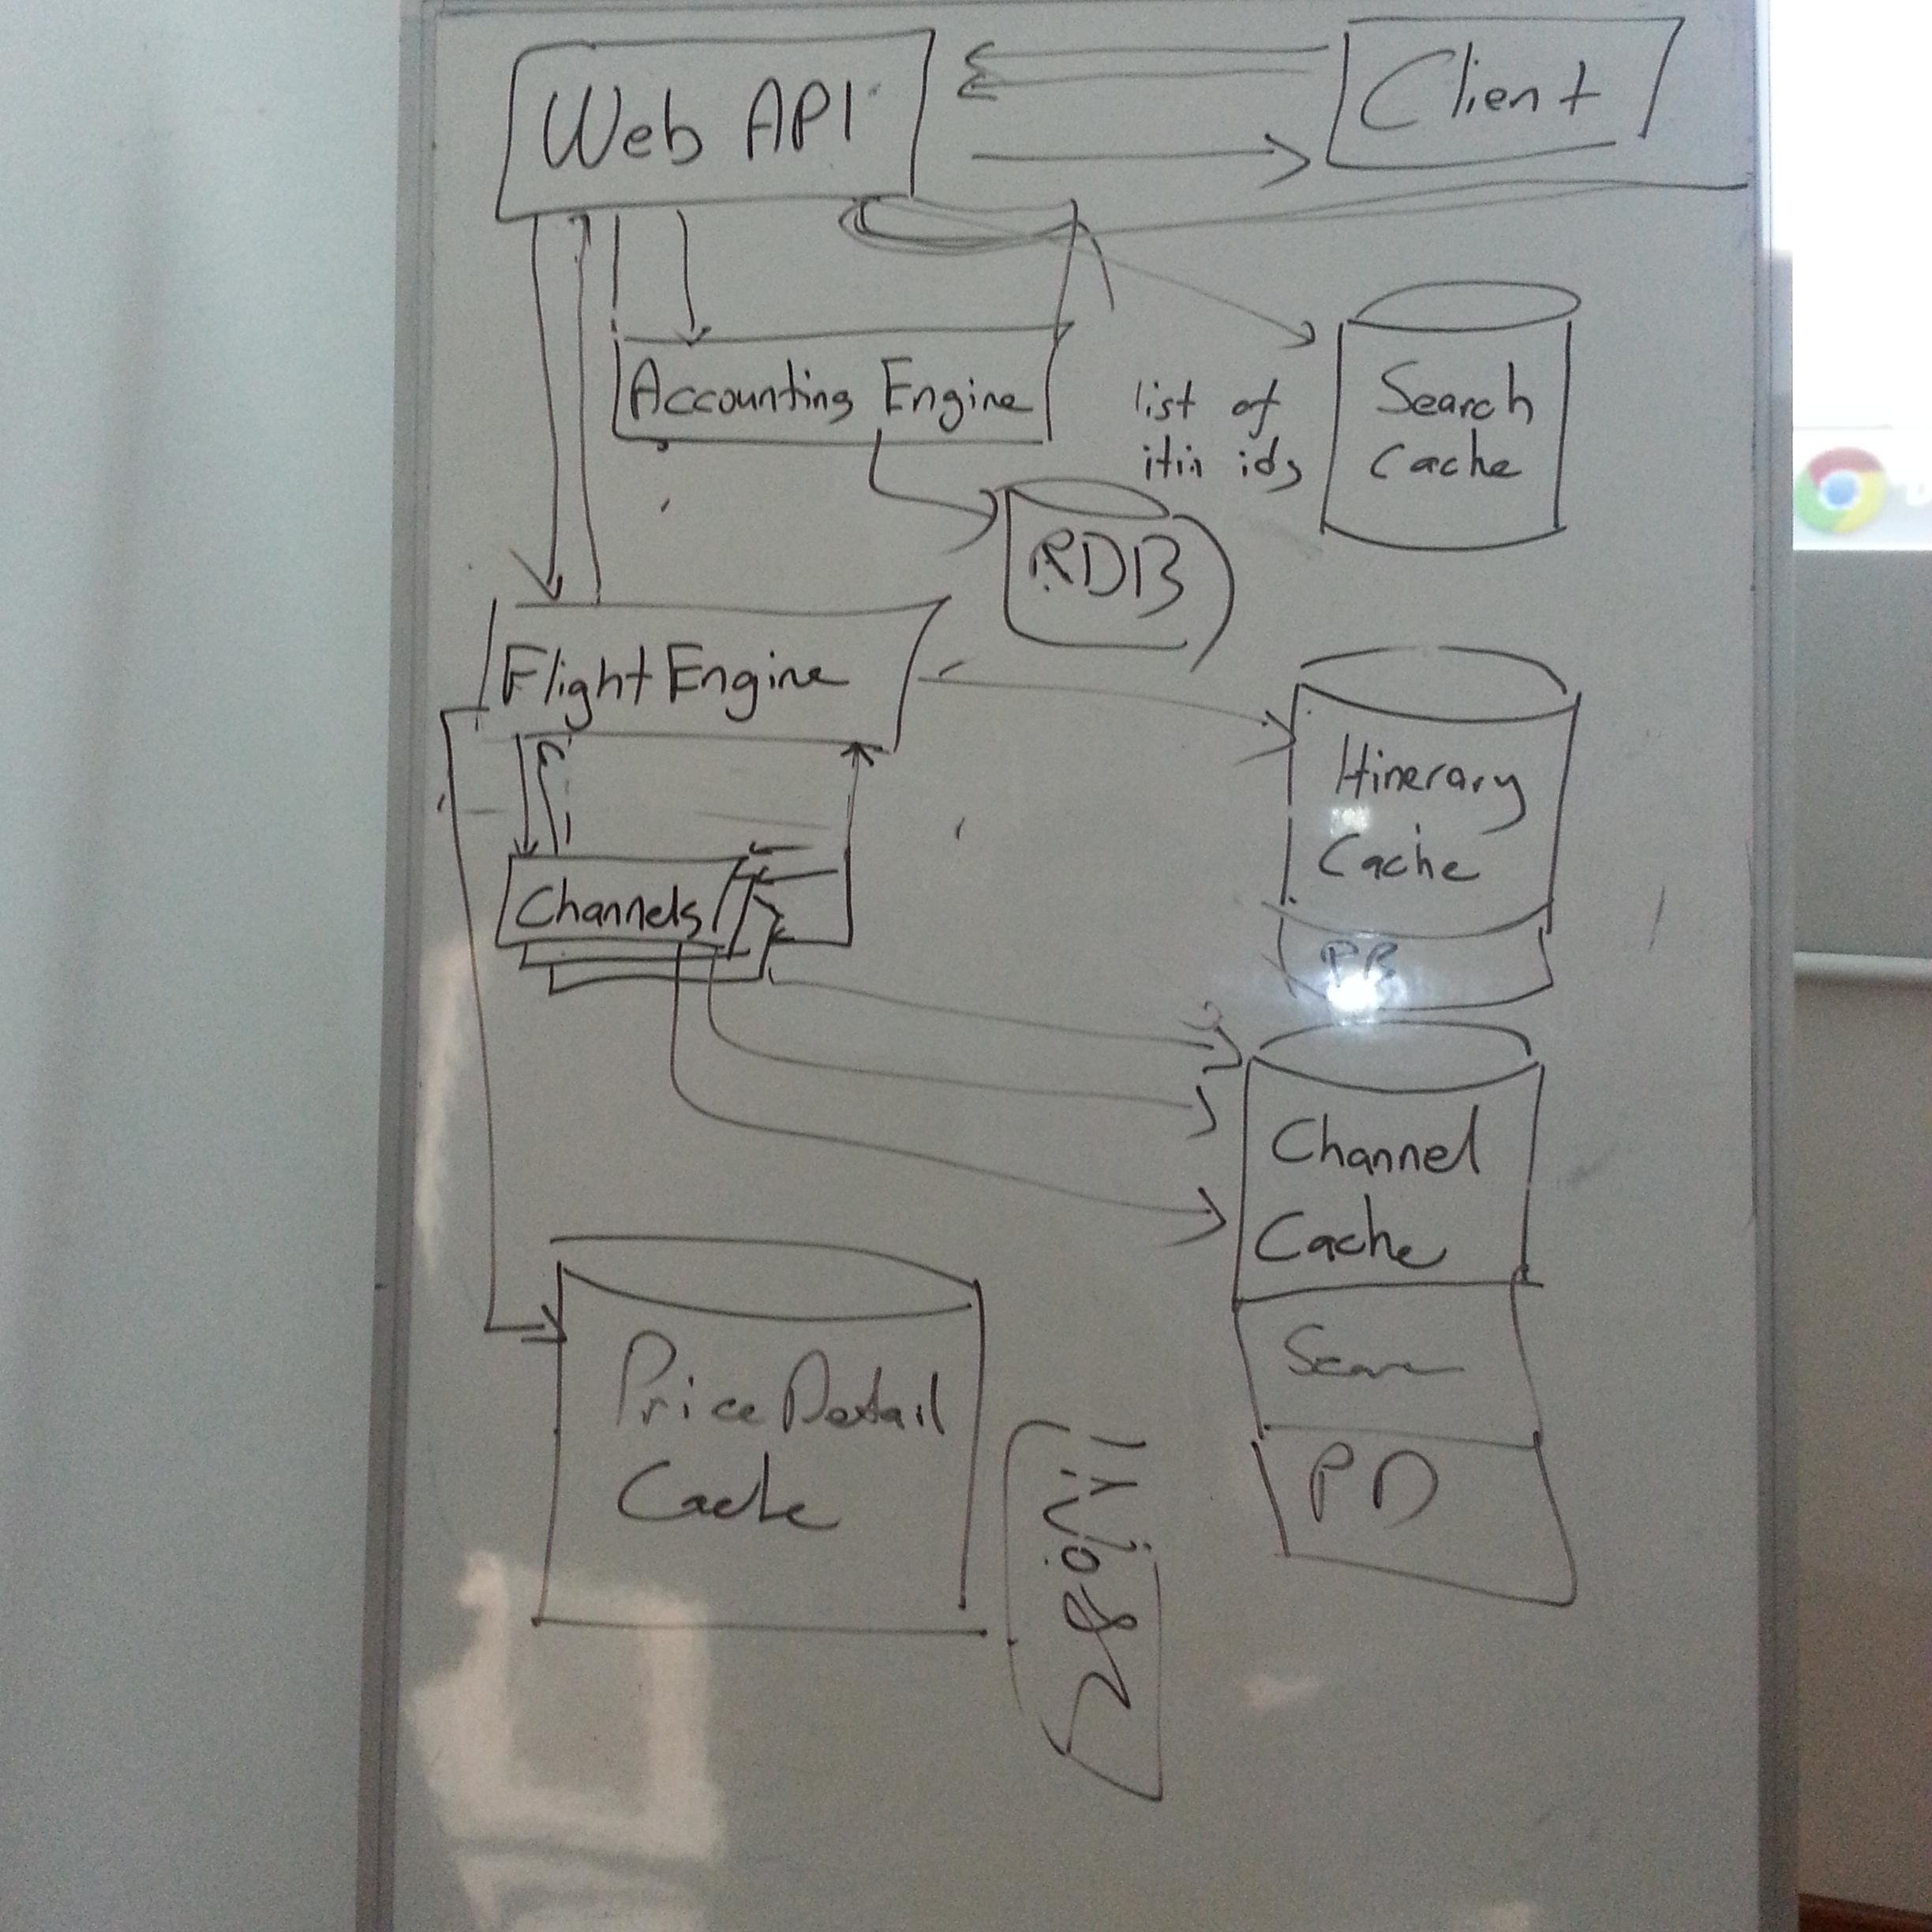 Web API
Client
Accounting Engine
list of
itin ids
Search
Cache
RDB
Flight Engine
Itinerary
Cache
Channels
Channel
Cache
Price Detail
Cache
PD